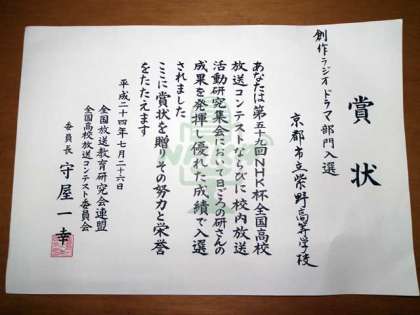 賞状
創作ラジオドラマ部門入選
京都市立紫野高等学校
あなたは第五十九回NHK杯全国高校
放送コンテストならびに校内放送
活動研究集会において日ごろの研さんの
成果を発揮し優れた成績で入選
されました
ここに賞状を贈りその努力と栄誉
をたたえます
平成二十四年七月二十六日
全国放送教育研究会連盟
全国高校放送コンテスト委員会
委員長 守屋一幸